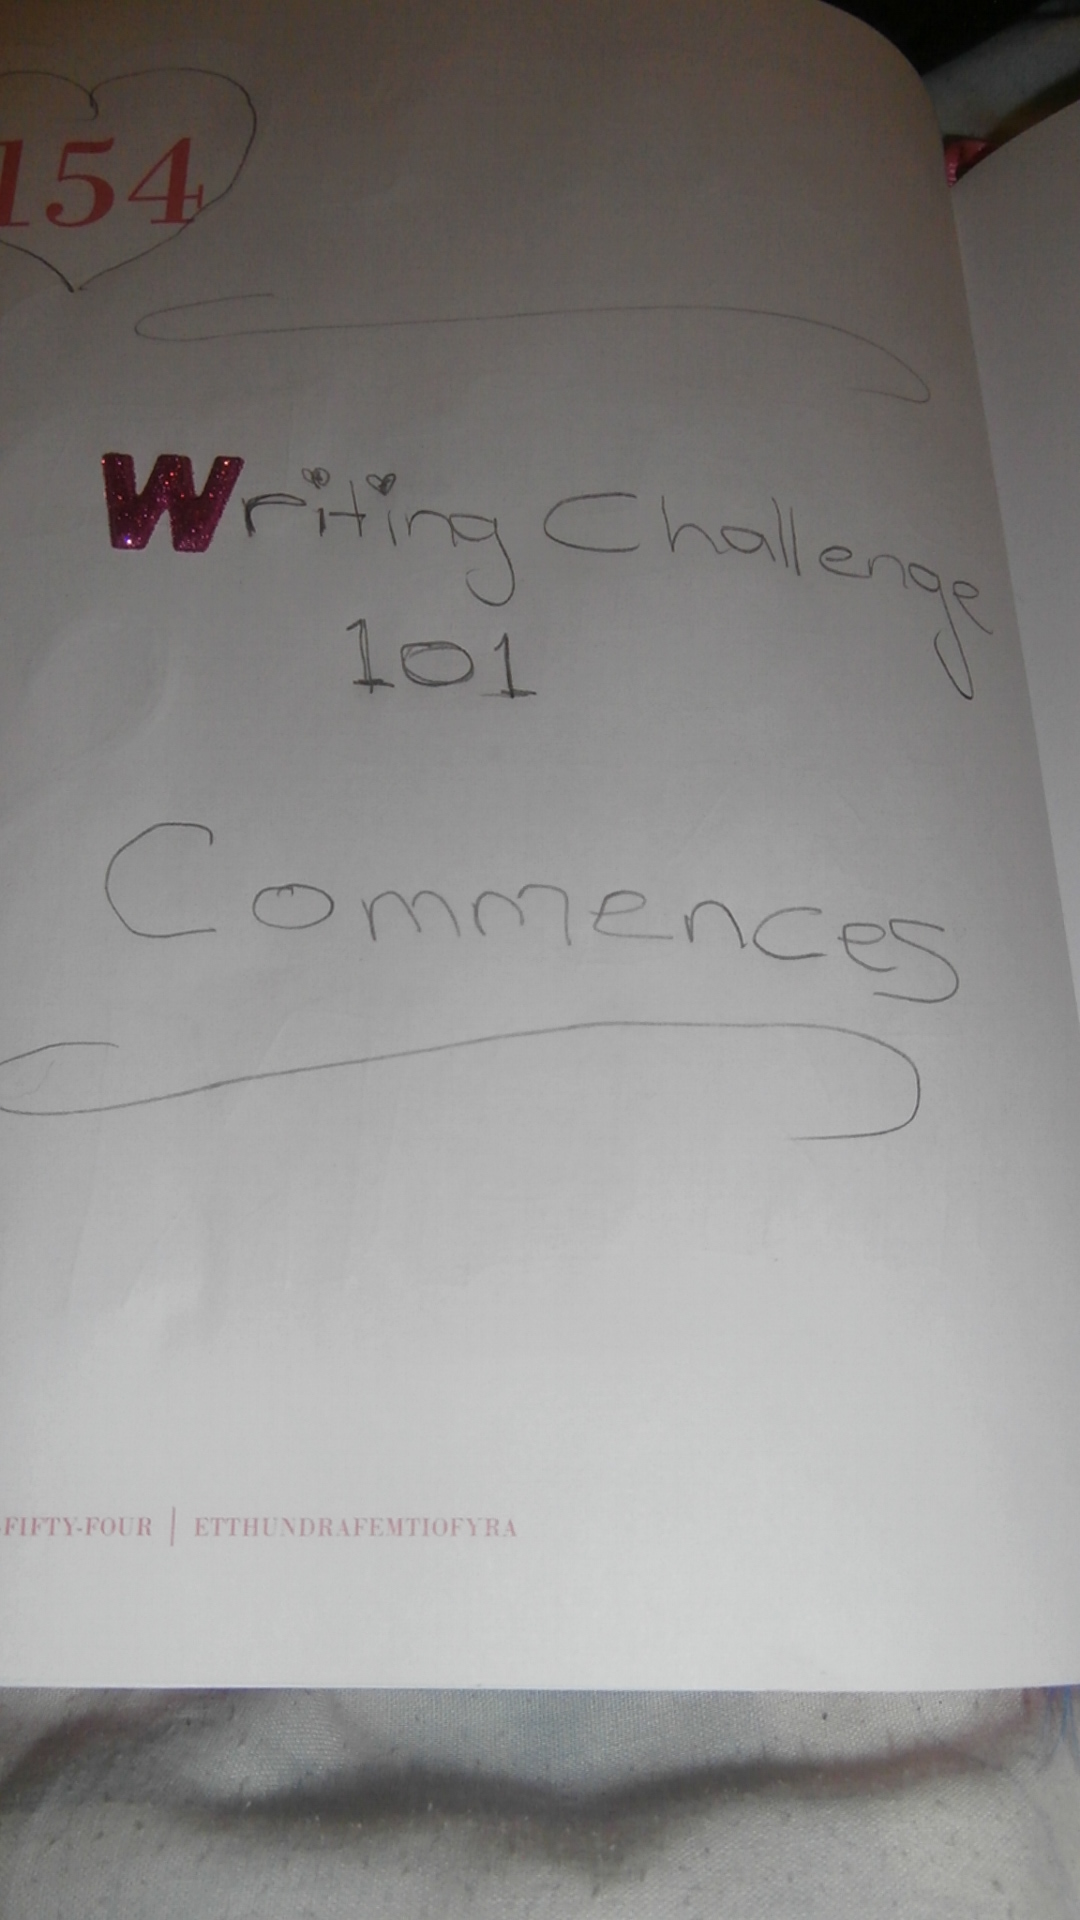 154
Writing Challenge
101
Commences
-FIFTY-FOUR | ETTHUNDRAFEMTIOFYRA